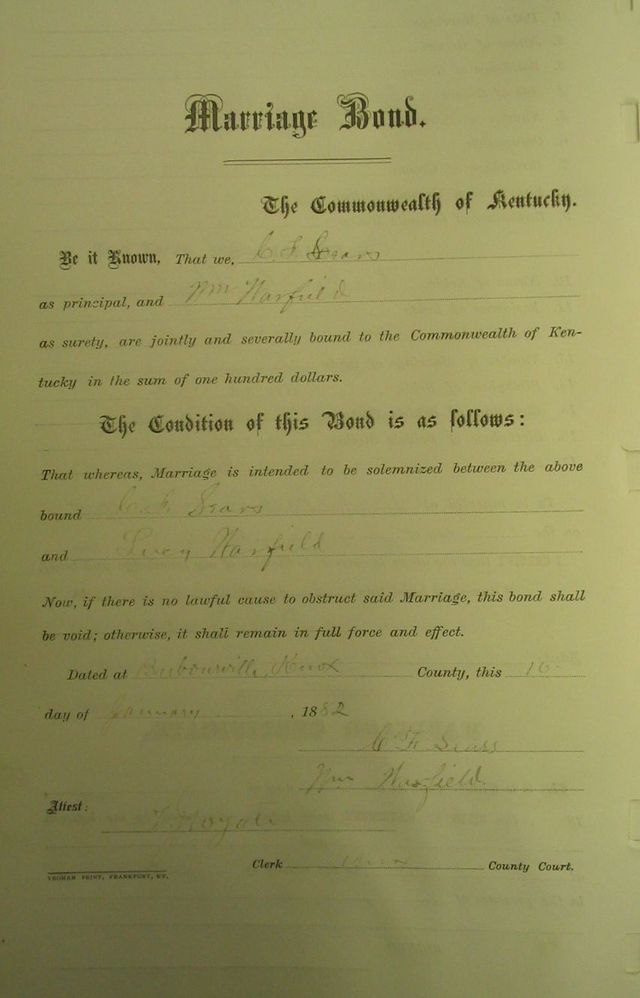 Marriage Bond.
The Commonwealth of Kentucky.
Be it Known, That we, C. F. Sears
as principal, and Wm Warfield
as surety, are jointly and severally bound to the Commonwealth of Ken-
tucky in the sum of one hundred dollars.
The Condition of this Bond is as follows:
That whereas, Marriage is intended to be solemnized between the above
bound C. F. Sears
and Lucy Warfield
Now, if there is no lawful cause to obstruct said Marriage, this bond shall
be void; otherwise, it shall remain in full force and effect.
Dated at Barbourville, Knox County, this 16
day of January, 1882
C F Sears
Wm Warfield
Attest:
Clerk Knox County Court.
YEOMAN PRINT, FRANKFORT, KY.